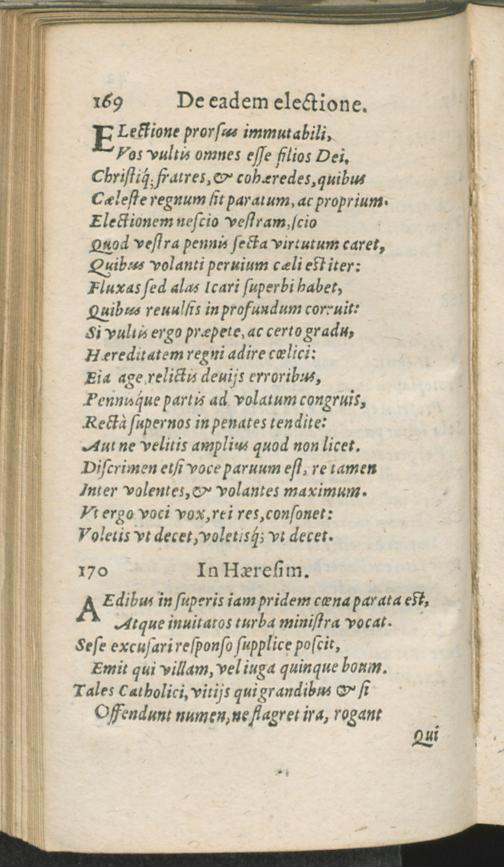 169 De eadem electione.
ELectione prorſus immutabili,
Vos vultis omnes eſſe filios Dei,
Chriſtiq́; fratres, & cohæredes, quibus
Cæleſte regnum ſit paratum, ac proprium.
Electionem neſcio veſtram, ſcio
Quod veſtra pennis ſecta virtutum caret,
Quibus volanti peruium cæli eſt iter:
Fluxas ſed alas Icari ſuperbi habet,
Quibus reuulſis in profundum corruit:
Si vultis ergo præpete, ac certo gradu,
Hæreditatem regni adire cœlici:
Eia age, relictis deuijs erroribus,
Pennisque partis ad volatum congruis,
Rectà ſupernos in penates tendite:
Aut ne velitis amplius quod non licet.
Diſcrimen etſi voce paruum eſt, re tamen
Inter volentes, & volantes maximum.
Vt ergo voci vox, rei res, conſonet:
Voletis vt decet, voletisq́; vt decet.
170 In Hæreſim.
AEdibus in ſuperis iam pridem cœna parata eſt,
Atque inuitatos turba miniſtra vocat.
Seſe excuſari reſponſo ſupplice poſcit,
Emit qui villam, vel iuga quinque boum.
Tales Catholici, vitijs qui grandibus & ſi
Offendunt numen, ne flagret ira, rogant
Qui